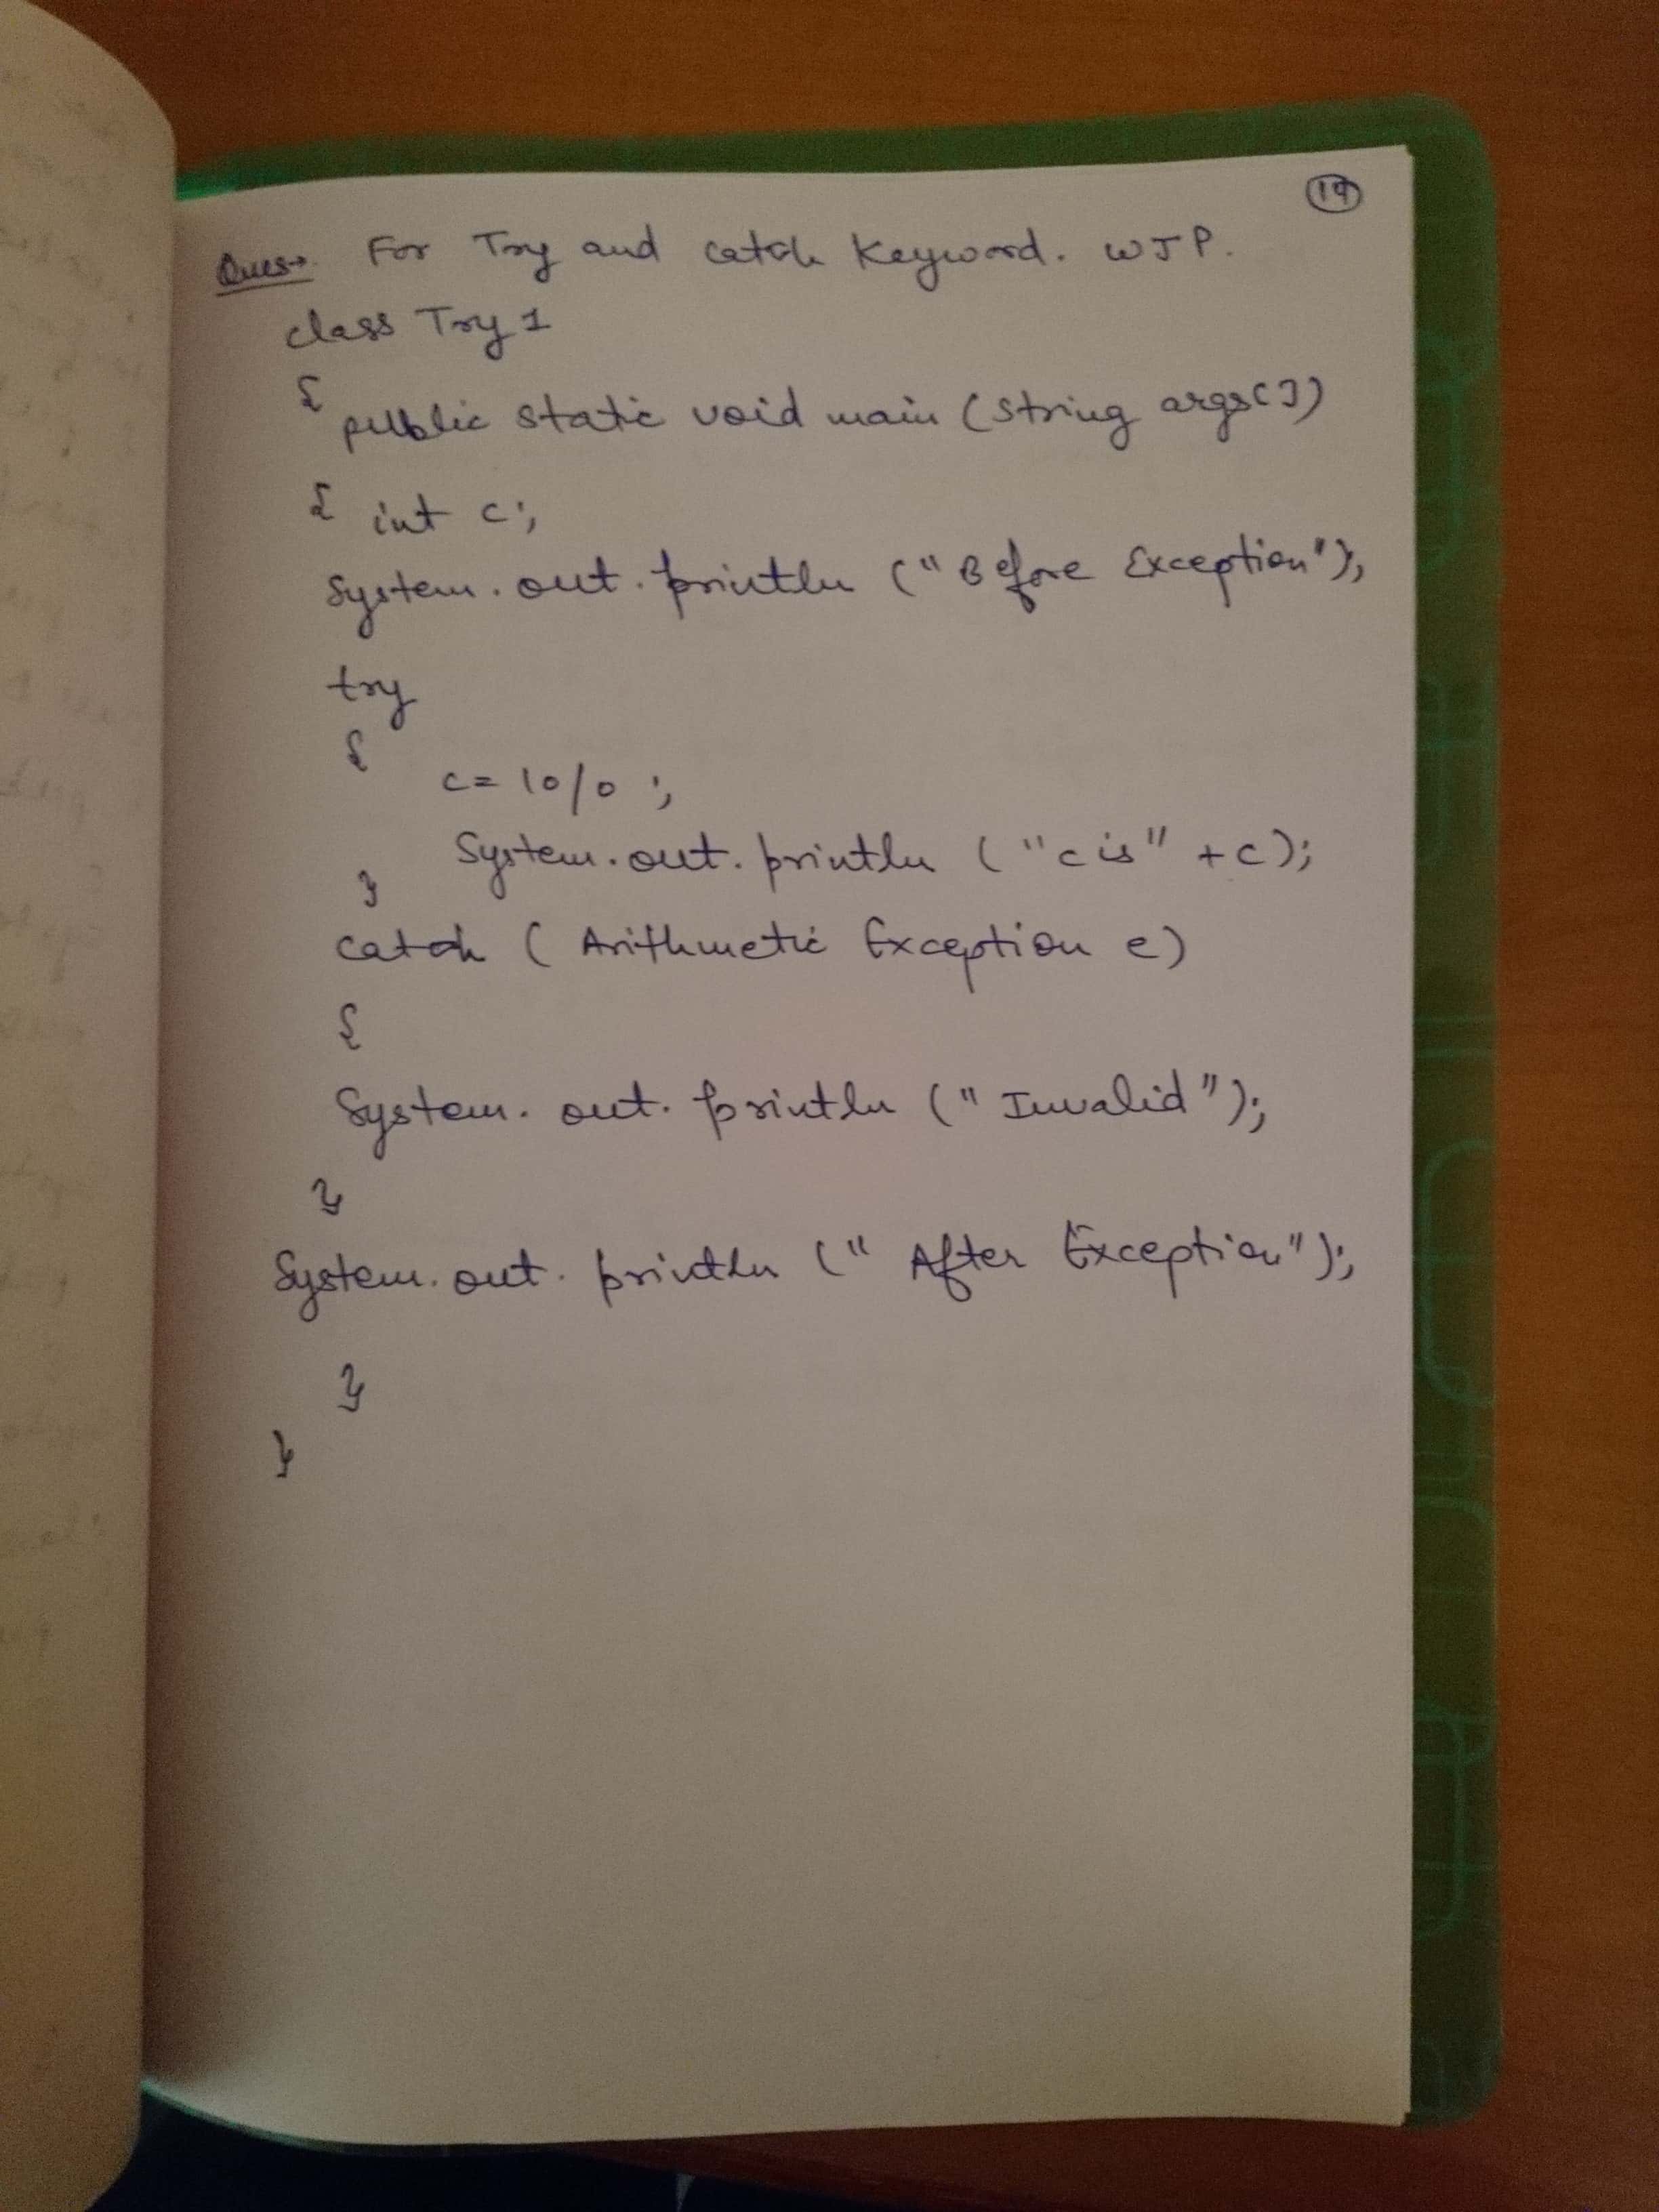 19
Ques→ For Try and catch Keyword. WJP.
class Try 1
{
public static void main (string args[])
{ int c;
System.out.println ("Before Exception");
try
{
c = 10/0 ;
System.out.println ("c is" + c);
}
catch ( Arithmetic Exception e)
{
System.out.println ("Invalid");
}
System.out.println (" After Exception");
}
}